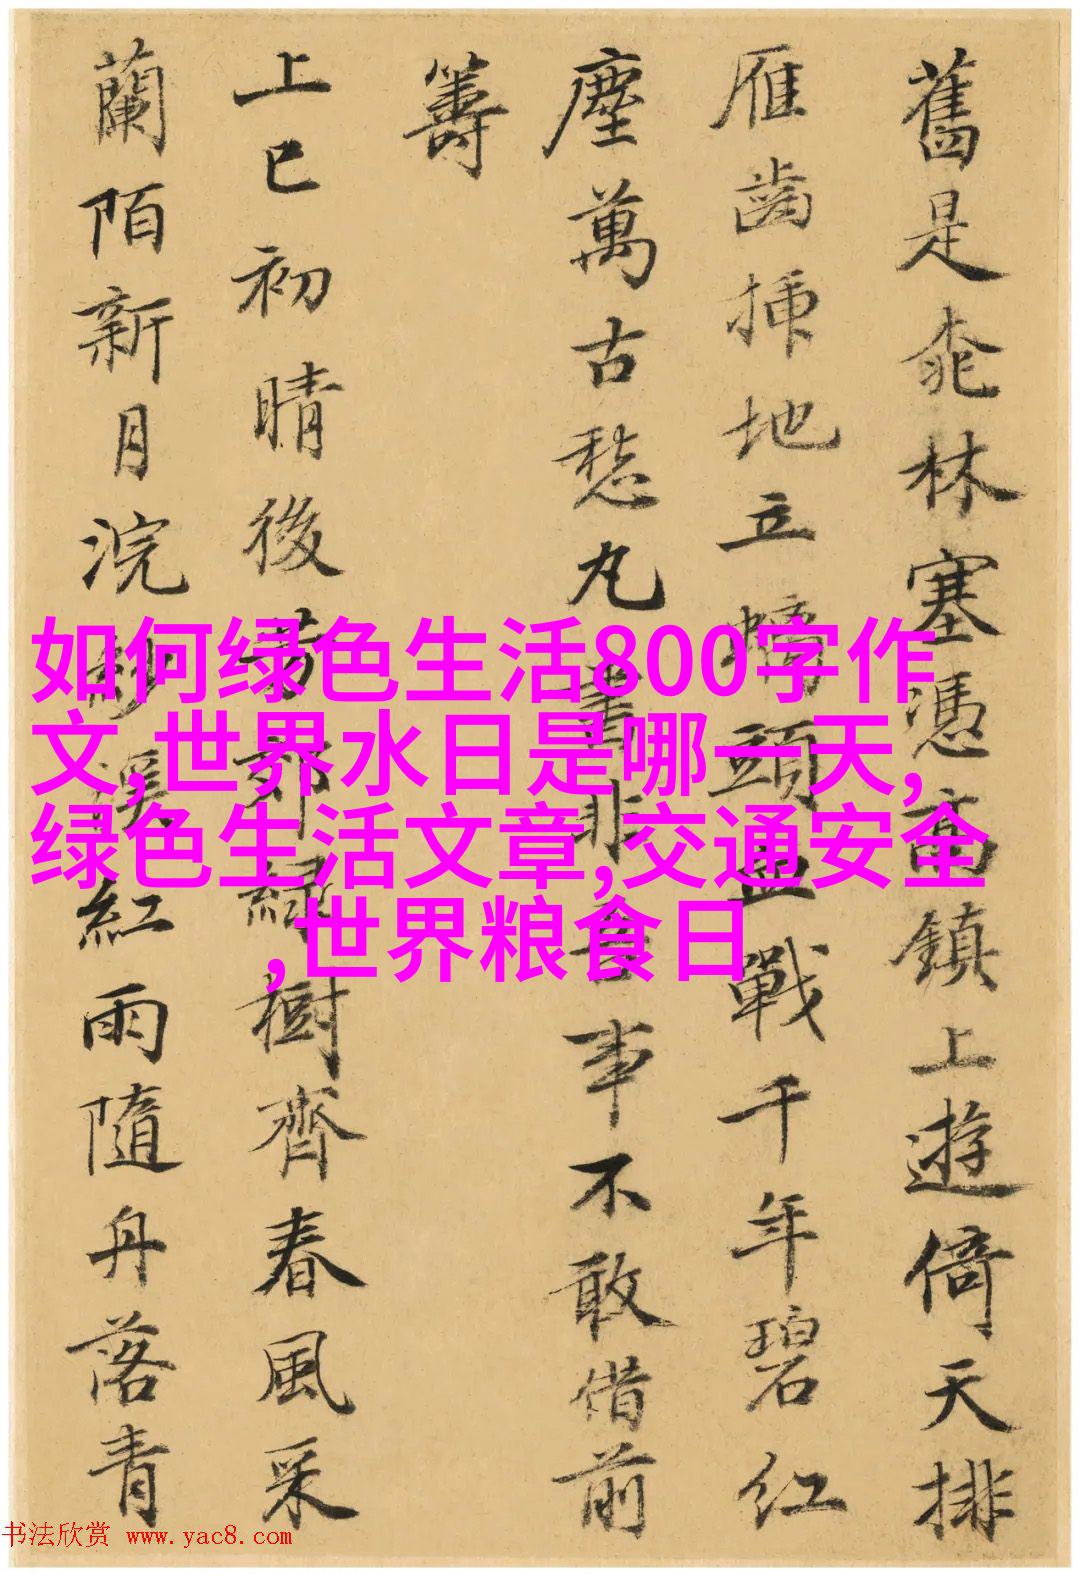 舊是桃林塞憑高鎮上遊倚天排
雁齒插地立螭頭血戰千年碧紅
塵萬古愁丸書非吾事不敢借前
籌
上巳初晴後芳郊綠樹齊春風采
蘭陌新月浣紗溪紅雨隨舟落青
如何绿色生活800字作
文,世界水日是哪一天,
绿色生活文章,交通安全
,世界粮食日
书法欣赏 www.yac8.com